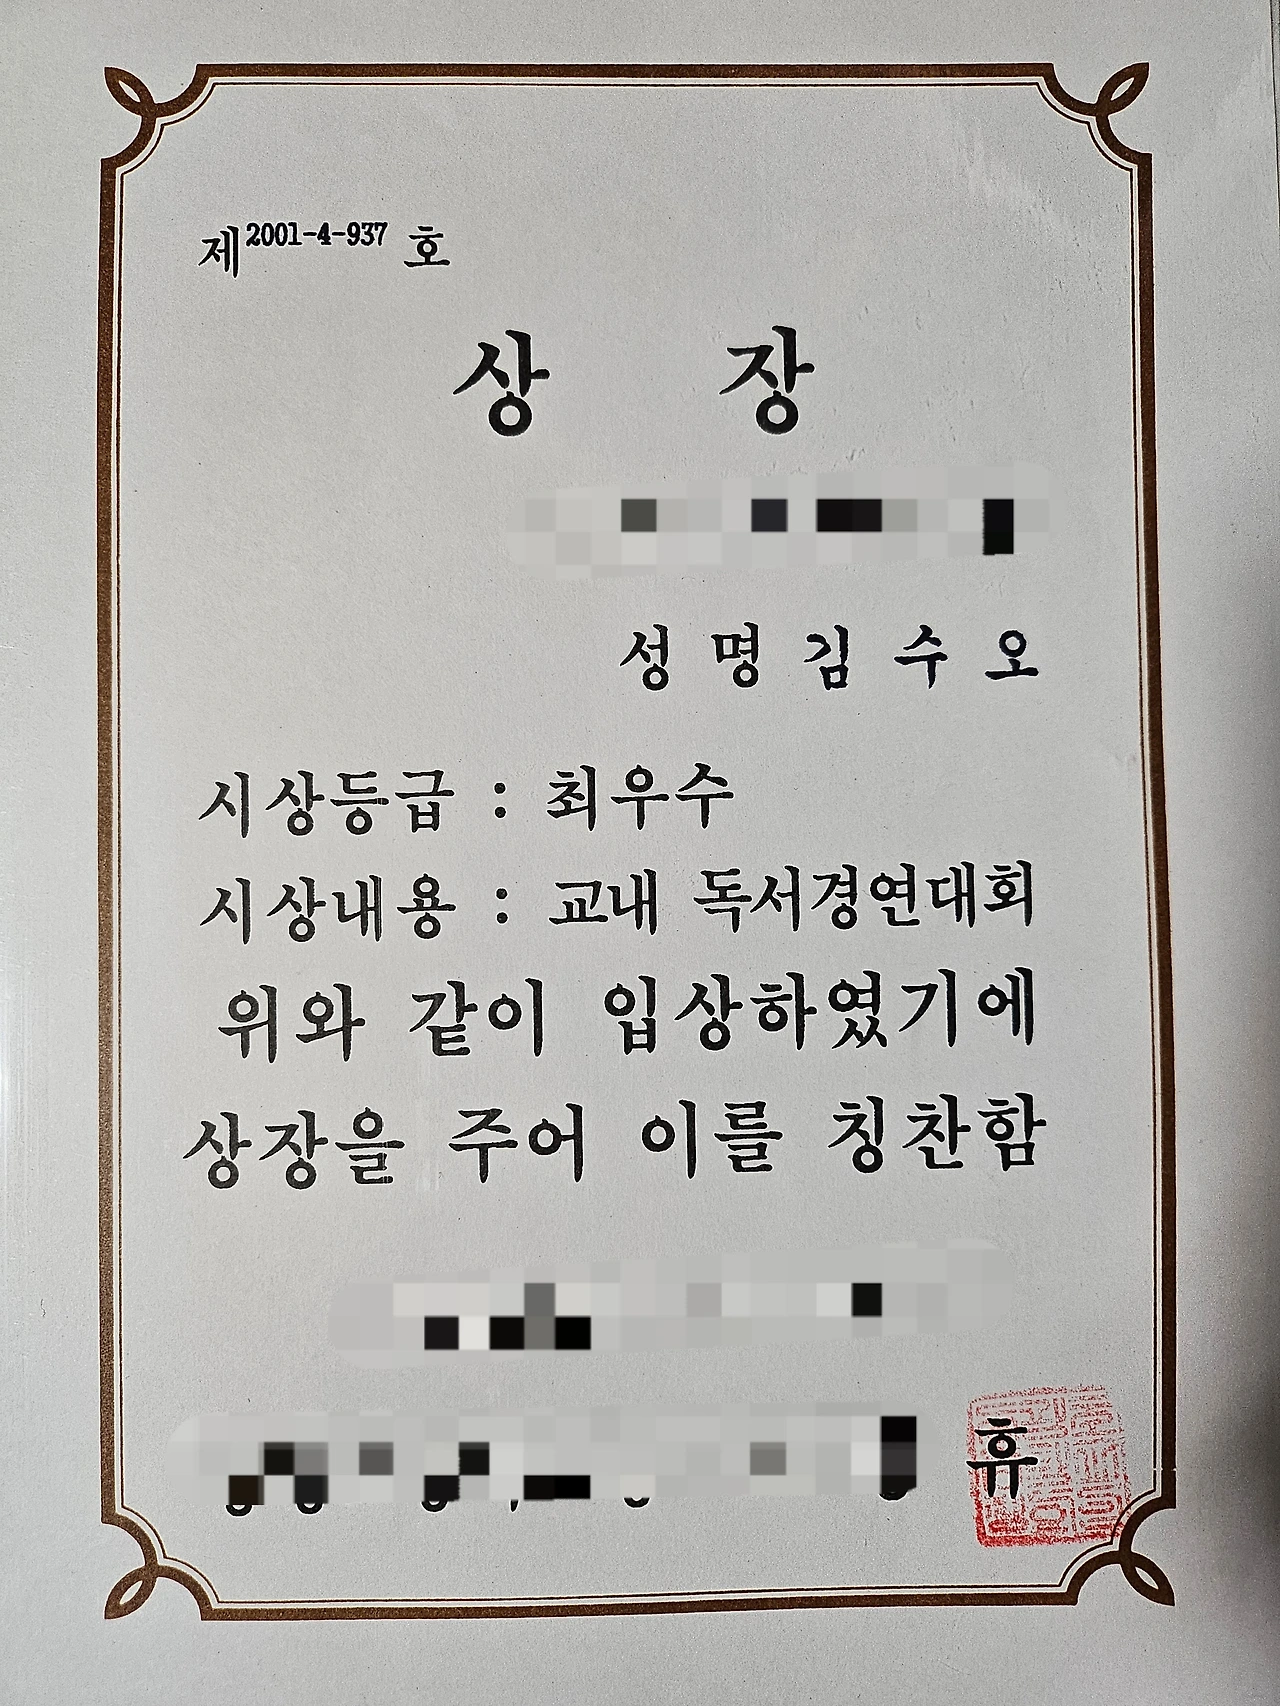 제2001-4-937 호
상 장
성 명 김 수 오
시상등급 : 최우수
시상내용 : 교내 독서경연대회
위와 같이 입상하였기에
상장을 주어 이를 칭찬함
휴